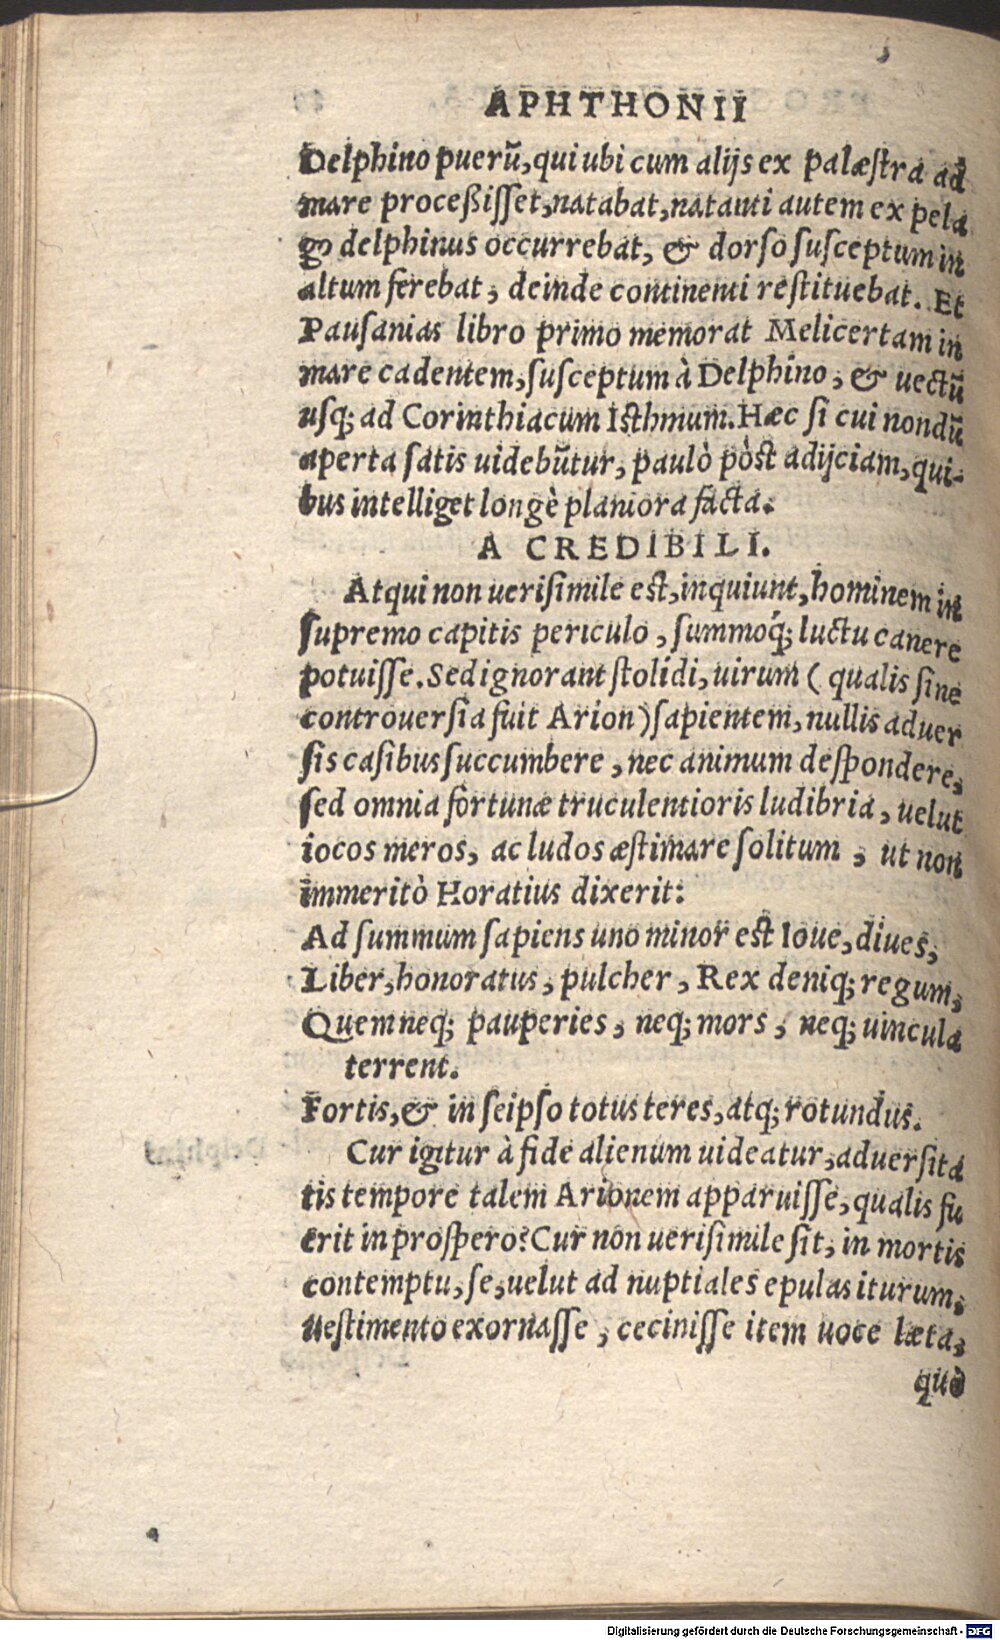 APHTHONII
Delphino puerũ, qui ubi cum alijs ex palæſtra ad
mare proceßiſſet, natabat, natanti autem ex pela
go delphinus occurrebat, & dorſo ſuſceptum in
altum ferebat, deinde continenti reſtituebat. Et
Pauſanias libro primo memorat Melicertam in
mare cadentem, ſuſceptum à Delphino, & uectũ
uſq; ad Corinthiacum Iſthmum. Hæc ſi cui nondũ
aperta ſatis uidebũtur, paulò pòſt adijciam, qui-
bus intelliget longè planiora facta.
A CREDIBILI.
Atqui non ueriſimile eſt, inquiunt, hominem in
ſupremo capitis periculo, ſummoq́; luctu canere
potuiſſe. Sed ignorant ſtolidi, uirum (qualis ſine
controuerſia fuit Arion) ſapientem, nullis aduer
ſis caſibus ſuccumbere, nec animum deſpondere,
ſed omnia fortunæ truculentioris ludibria, uelut
iocos meros, ac ludos æſtimare ſolitum, ut non
immeritò Horatius dixerit:
Ad ſummum ſapiens uno minor eſt Ioue, diues,
Liber, honoratus, pulcher, Rex deniq; regum,
Quem neq; pauperies, neq; mors, neq; uincula
terrent.
Fortis, & in ſeipſo totus teres, atq; rotundus.
Cur igitur à fide alienum uideatur, aduerſita
tis tempore talem Arionem apparuiſſe, qualis fu
erit in proſpero? Cur non ueriſimile ſit, in mortis
contemptu, ſe, uelut ad nuptiales epulas iturum,
ueſtimento exornaſſe, ceciniſſe item uoce læta,
quò
Digitalisierung gefördert durch die Deutsche Forschungsgemeinschaft - DFG